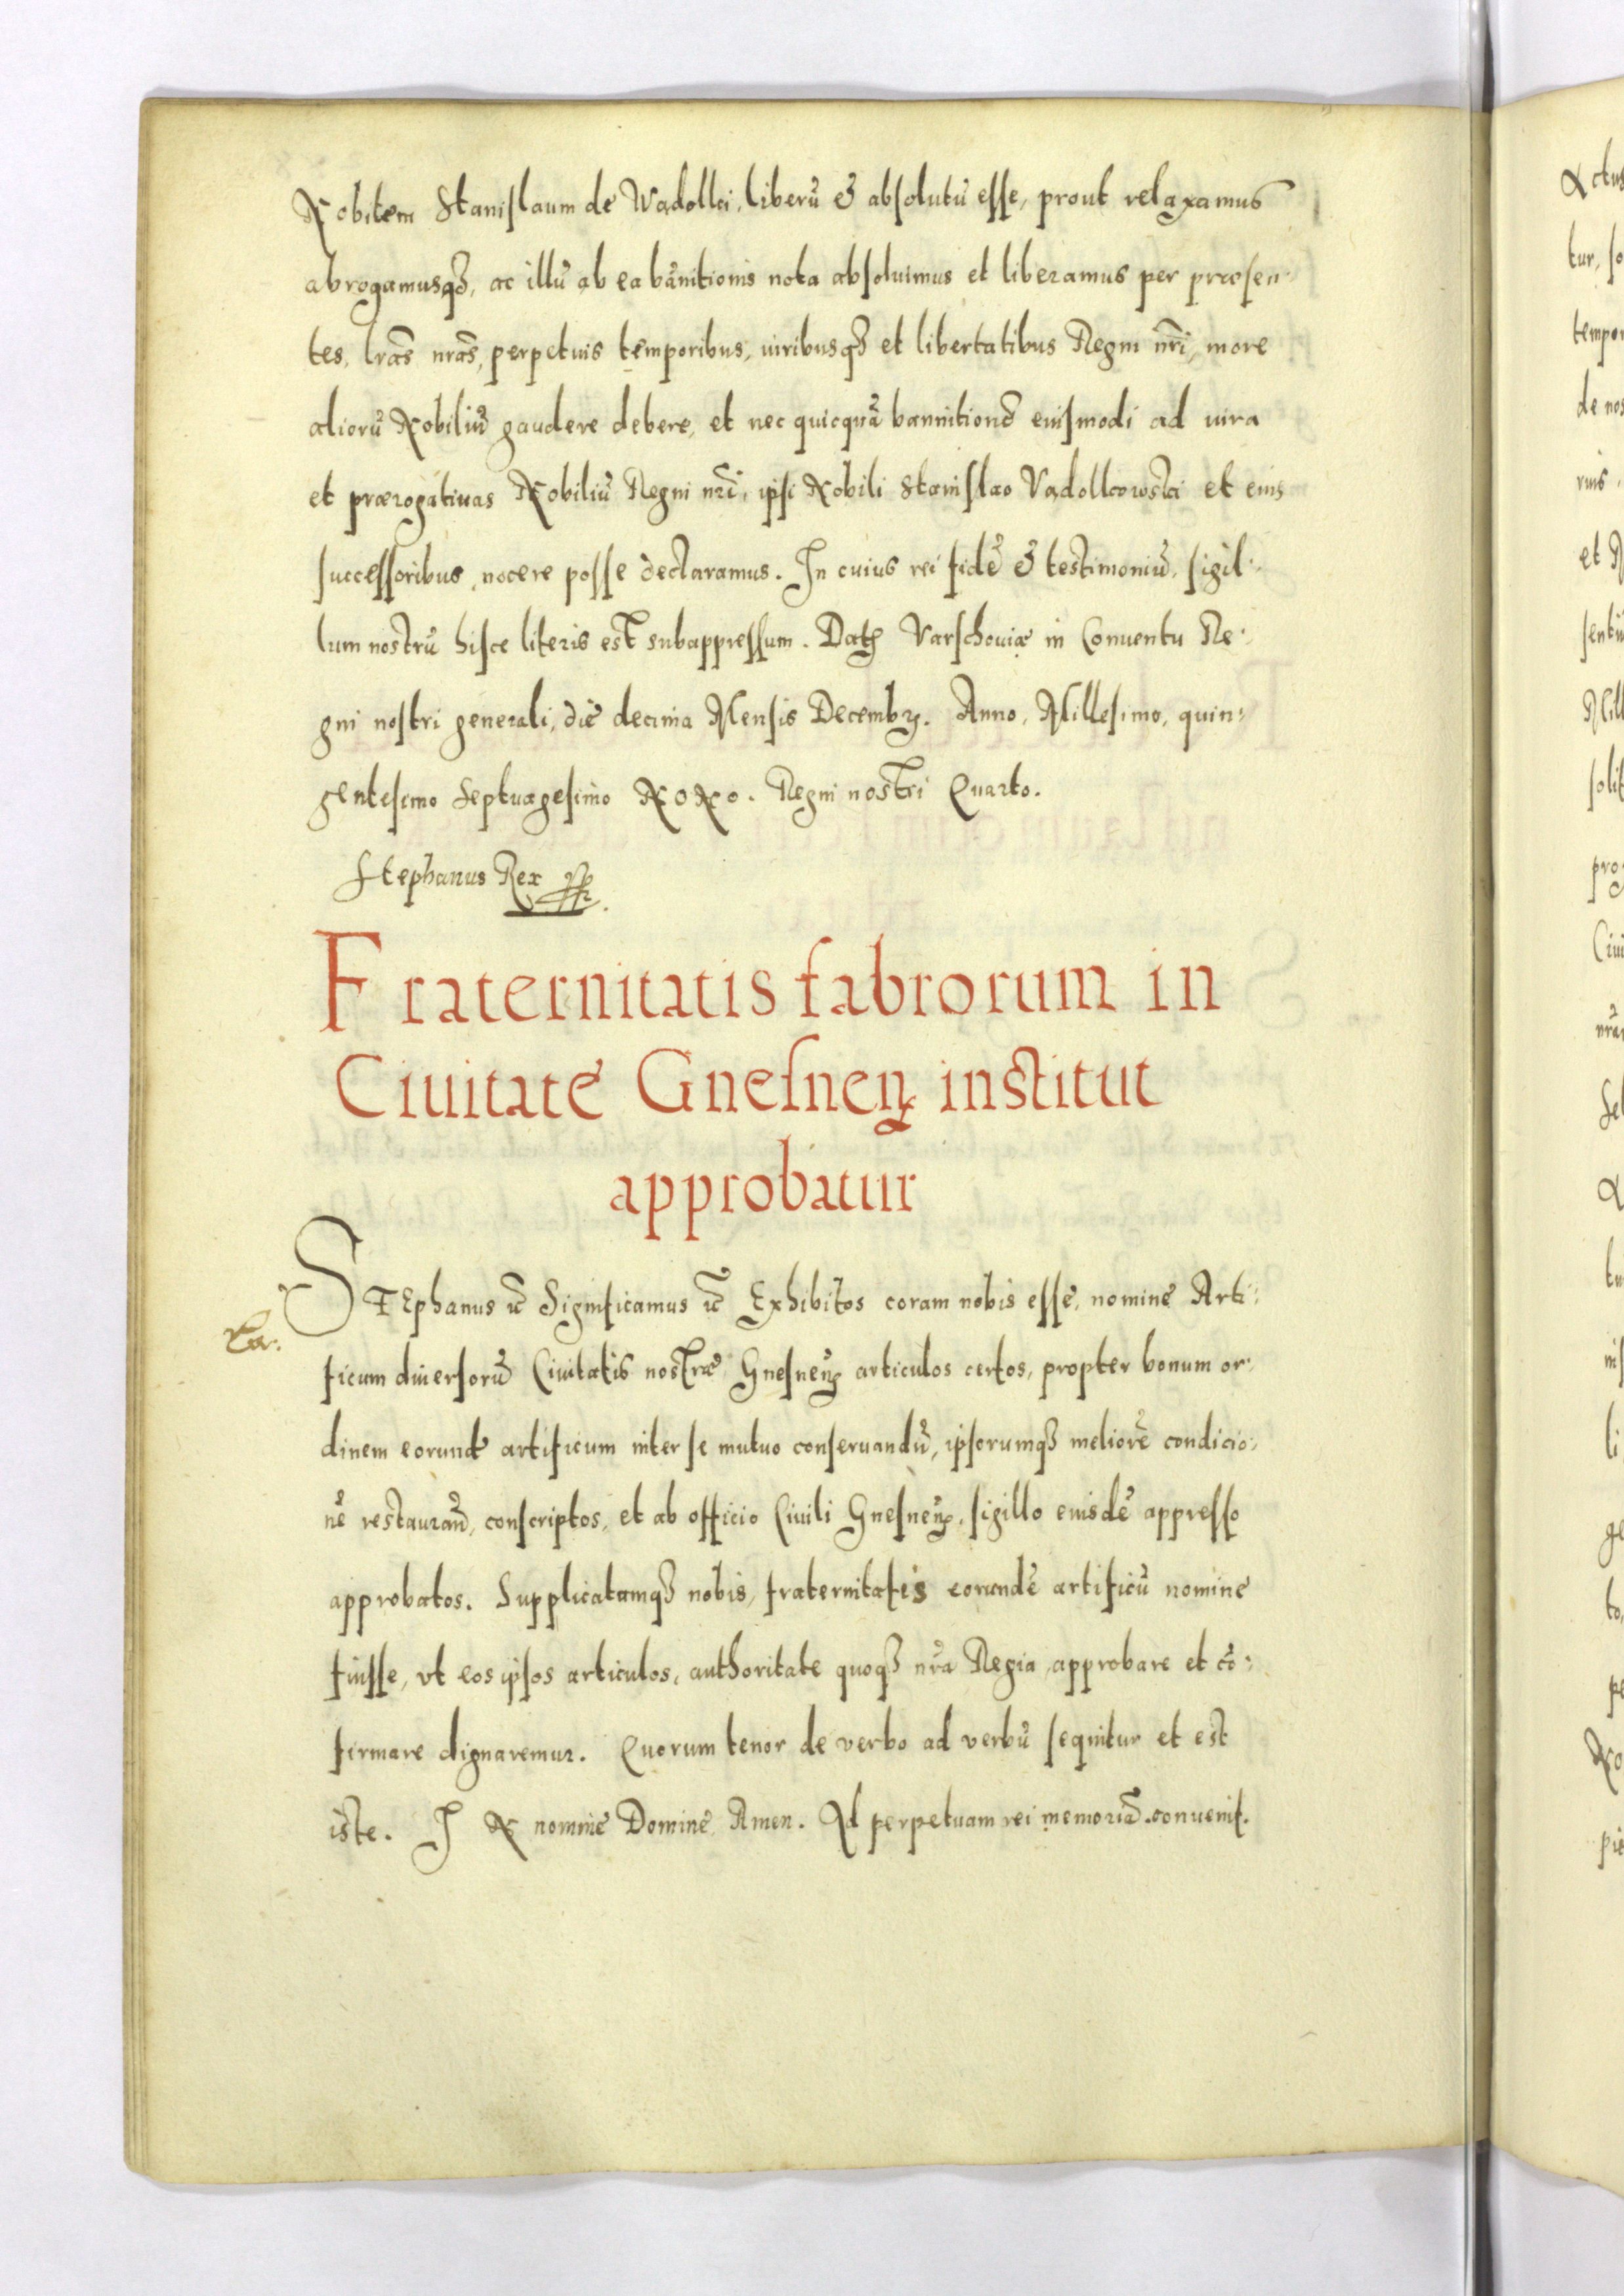 Nobilem Stanislaum de Wadollki, liberũ & absolutũ esse, prout relaxamus
abrogamusq3, ac illũ ab ea bãnitionis nota absoluimus et liberamus per præsen-
tes, lras nras, perpetuis temporibus, iuribusq3 et libertatibus Regni nri, more
aliorũ Nobiliũ gaudere debere, et nec quicquã bannitione eiusmodi ad iura
et prærogatiuas Nobiliũ Regni nri, ipsi Nobili Stanislao Vadollkowski et eius
successoribus, nocere posse declaramus. In cuius rei fidẽ & testimoniũ, sigil-
lum nostrũ hisce literis est subappressum. Datꝭ Varschouiæ in Conuentu Re-
gni nostri generali, die decima Mensis Decembꝭ. Anno, Millesimo, quin-
gentesimo Septuagesimo NoNo. Regni nostri Quarto.
Stephanus Rex sspt.
Fraternitatis fabrorum in
Ciuitate Gnesneñ institut
approbatur
STEphanus uc̃ Significamus uc̃ Exhibitos coram nobis esse, nomine Arti-
ficum diuersorũ Ciuitatis nostræ Gnesneñ articulos certos, propter bonum or-
dinem eorund artificum inter se mutuo conseruandũ, ipsorumq3 meliorẽ condicio-
nẽ restaurañ, conscriptos, et ab officio Ciuili Gnesneñ, sigillo eiusdẽ appresso
approbatos. Supplicatumq3 nobis, fraternitatis eorundẽ artificũ nomine
fuisse, vt eos ipsos articulos, authoritate quoq3 nra Regia approbare et cõ-
firmare dignaremur. Quorum tenor de verbo ad verbũ sequitur et est
iste. I N nomine Domine Amen. Ad perpetuam rei memoriã. conuenit.